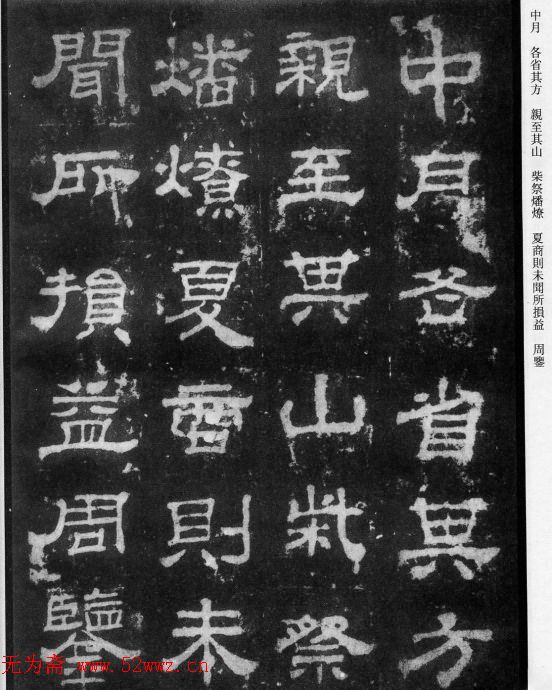 中月各省其方
親至其山柴祭
燔燎夏商則未
聞所損益周鑒
中月　各省其方　親至其山　柴祭燔燎　夏商則未聞所損益　周鑒
无为斋 www.52wwz.cn